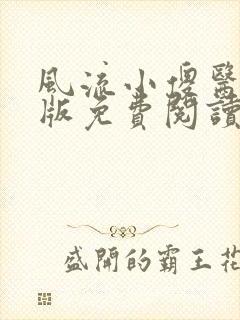 風流小傻醫
版免費閱讀
盛開的霸王花